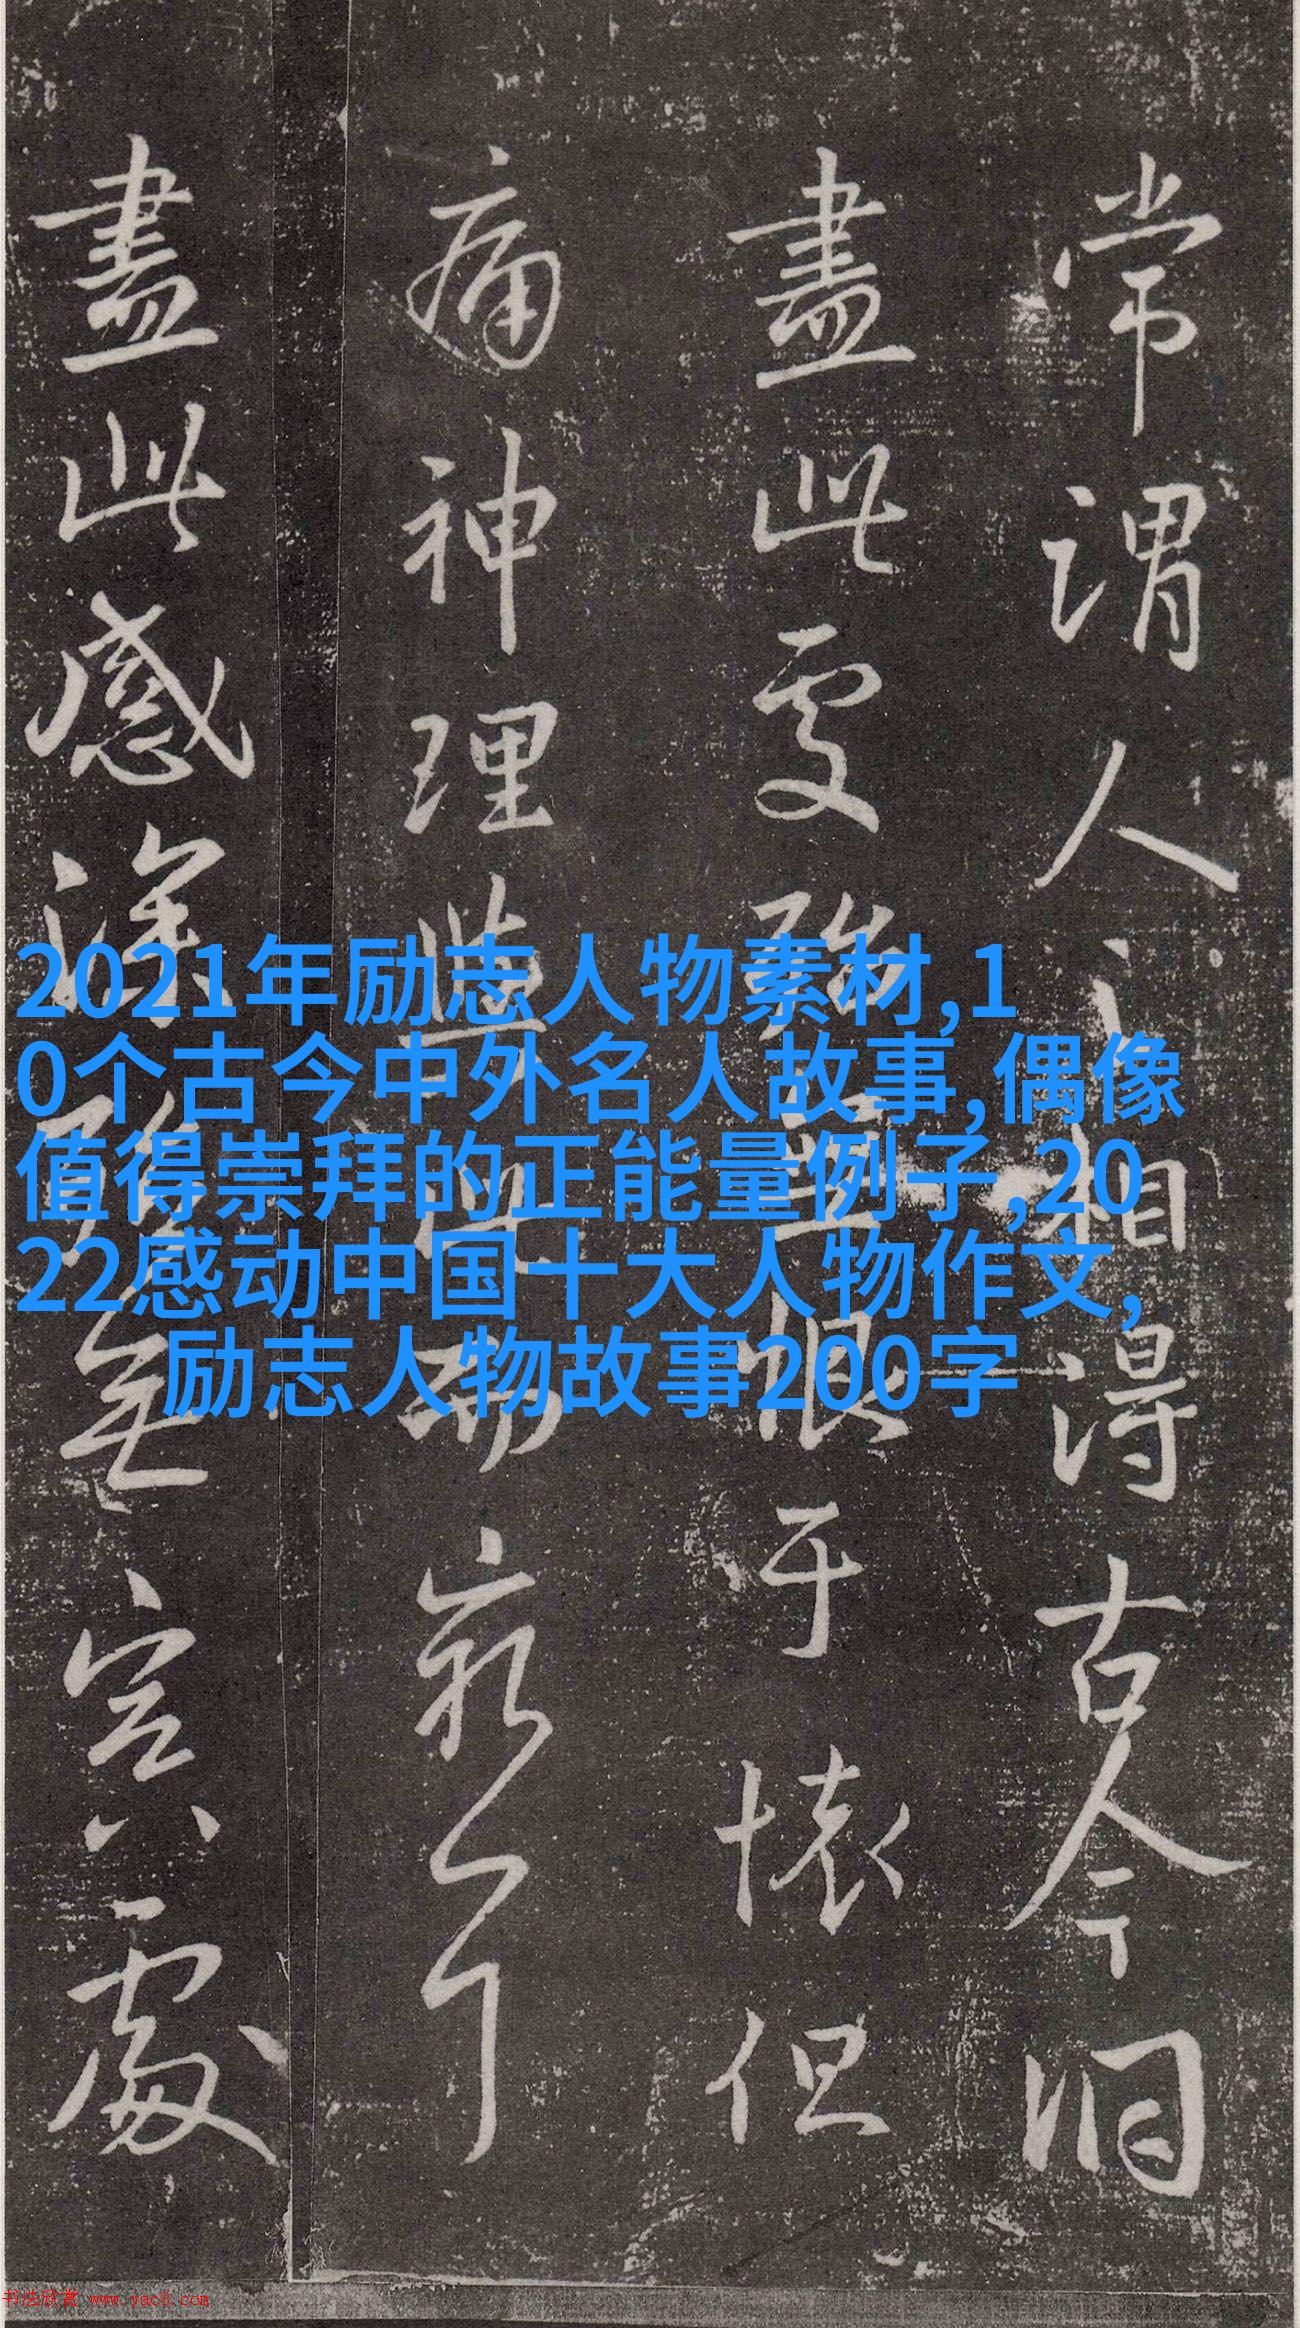 常謂人之相得古今洞
盡此處殆無恨于懷但
痛神理與此而窮耳
盡此感深殆無冥處
2021年励志人物素材,1
0个古今中外名人故事,偶像
值得崇拜的正能量例子,20
22感动中国十大人物作文,
励志人物故事200字
书法欣赏 www.yac8.com